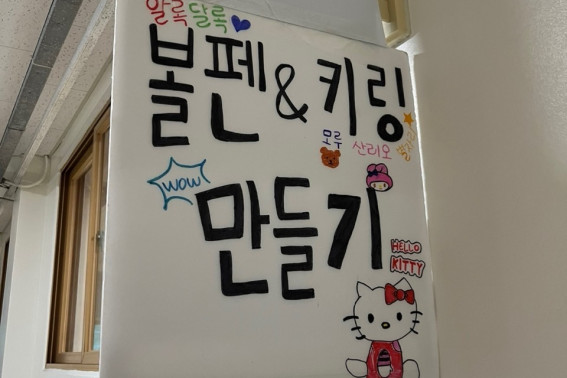 알록달록
볼펜&키링
모루
산리오
WOW
만들기
HELLO
KITTY